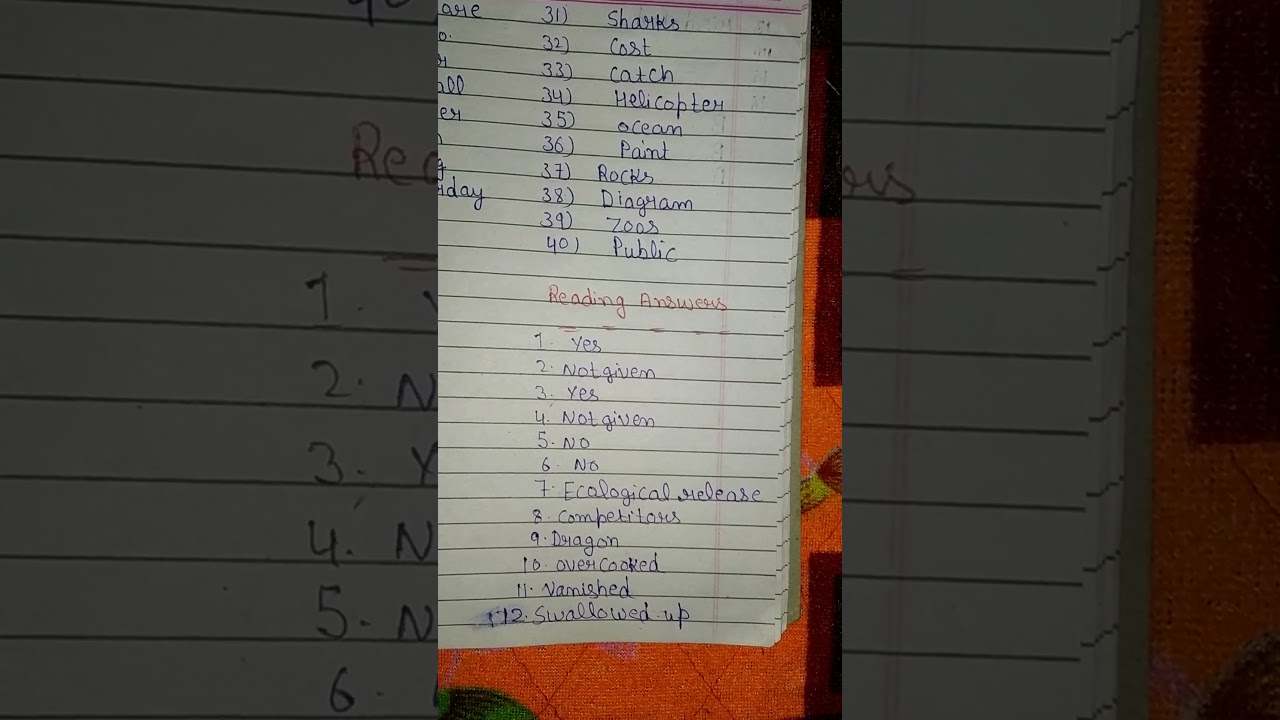 are 31) Sharks
32) Cost
33) Catch
34) Helicopter
35) Ocean
36) Paint
37) Rocks
day 38) Diagram
39) Zoos
40) Public
Reading Answers
1. Yes
2. Not given
3. Yes
4. Not given
5. No
6. No
7. Ecological release
8. Competitors
9. Dragon
10. overcooked
11. Vanished
12. Swallowed up